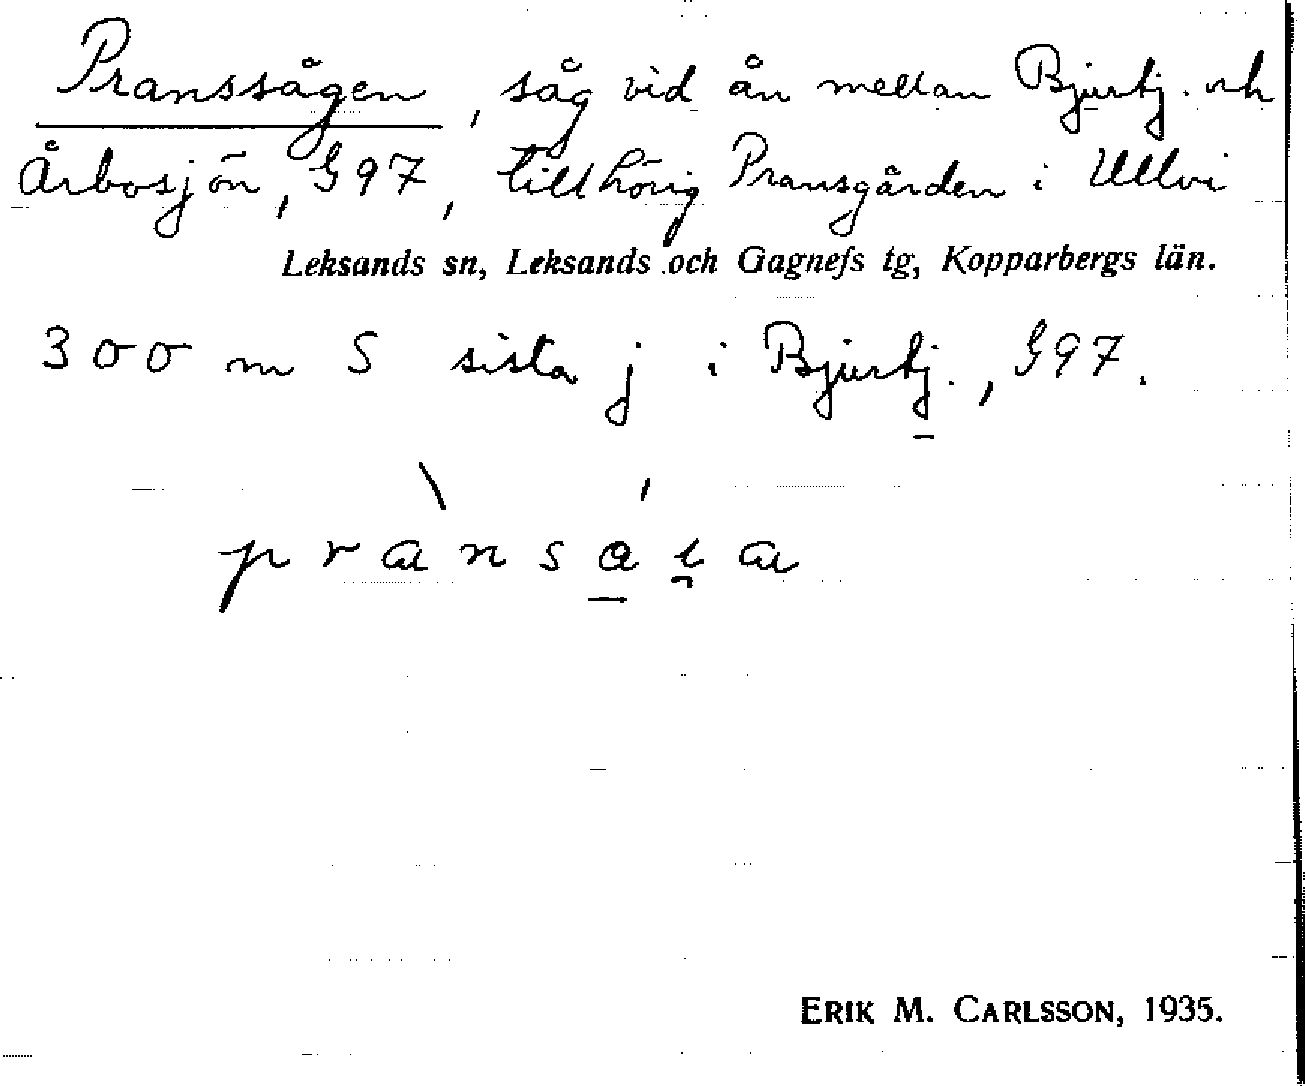 Pranssågen, såg vid ån mellan Bjurtj. och
Årbosjön, G97, tillhörig Pransgården i Ullvi
Leksands sn, Leksands och Gagnefs tg, Kopparbergs län.
300 m S sista j i Bjurtj., G97.
ERIK M. CARLSSON, 1935.